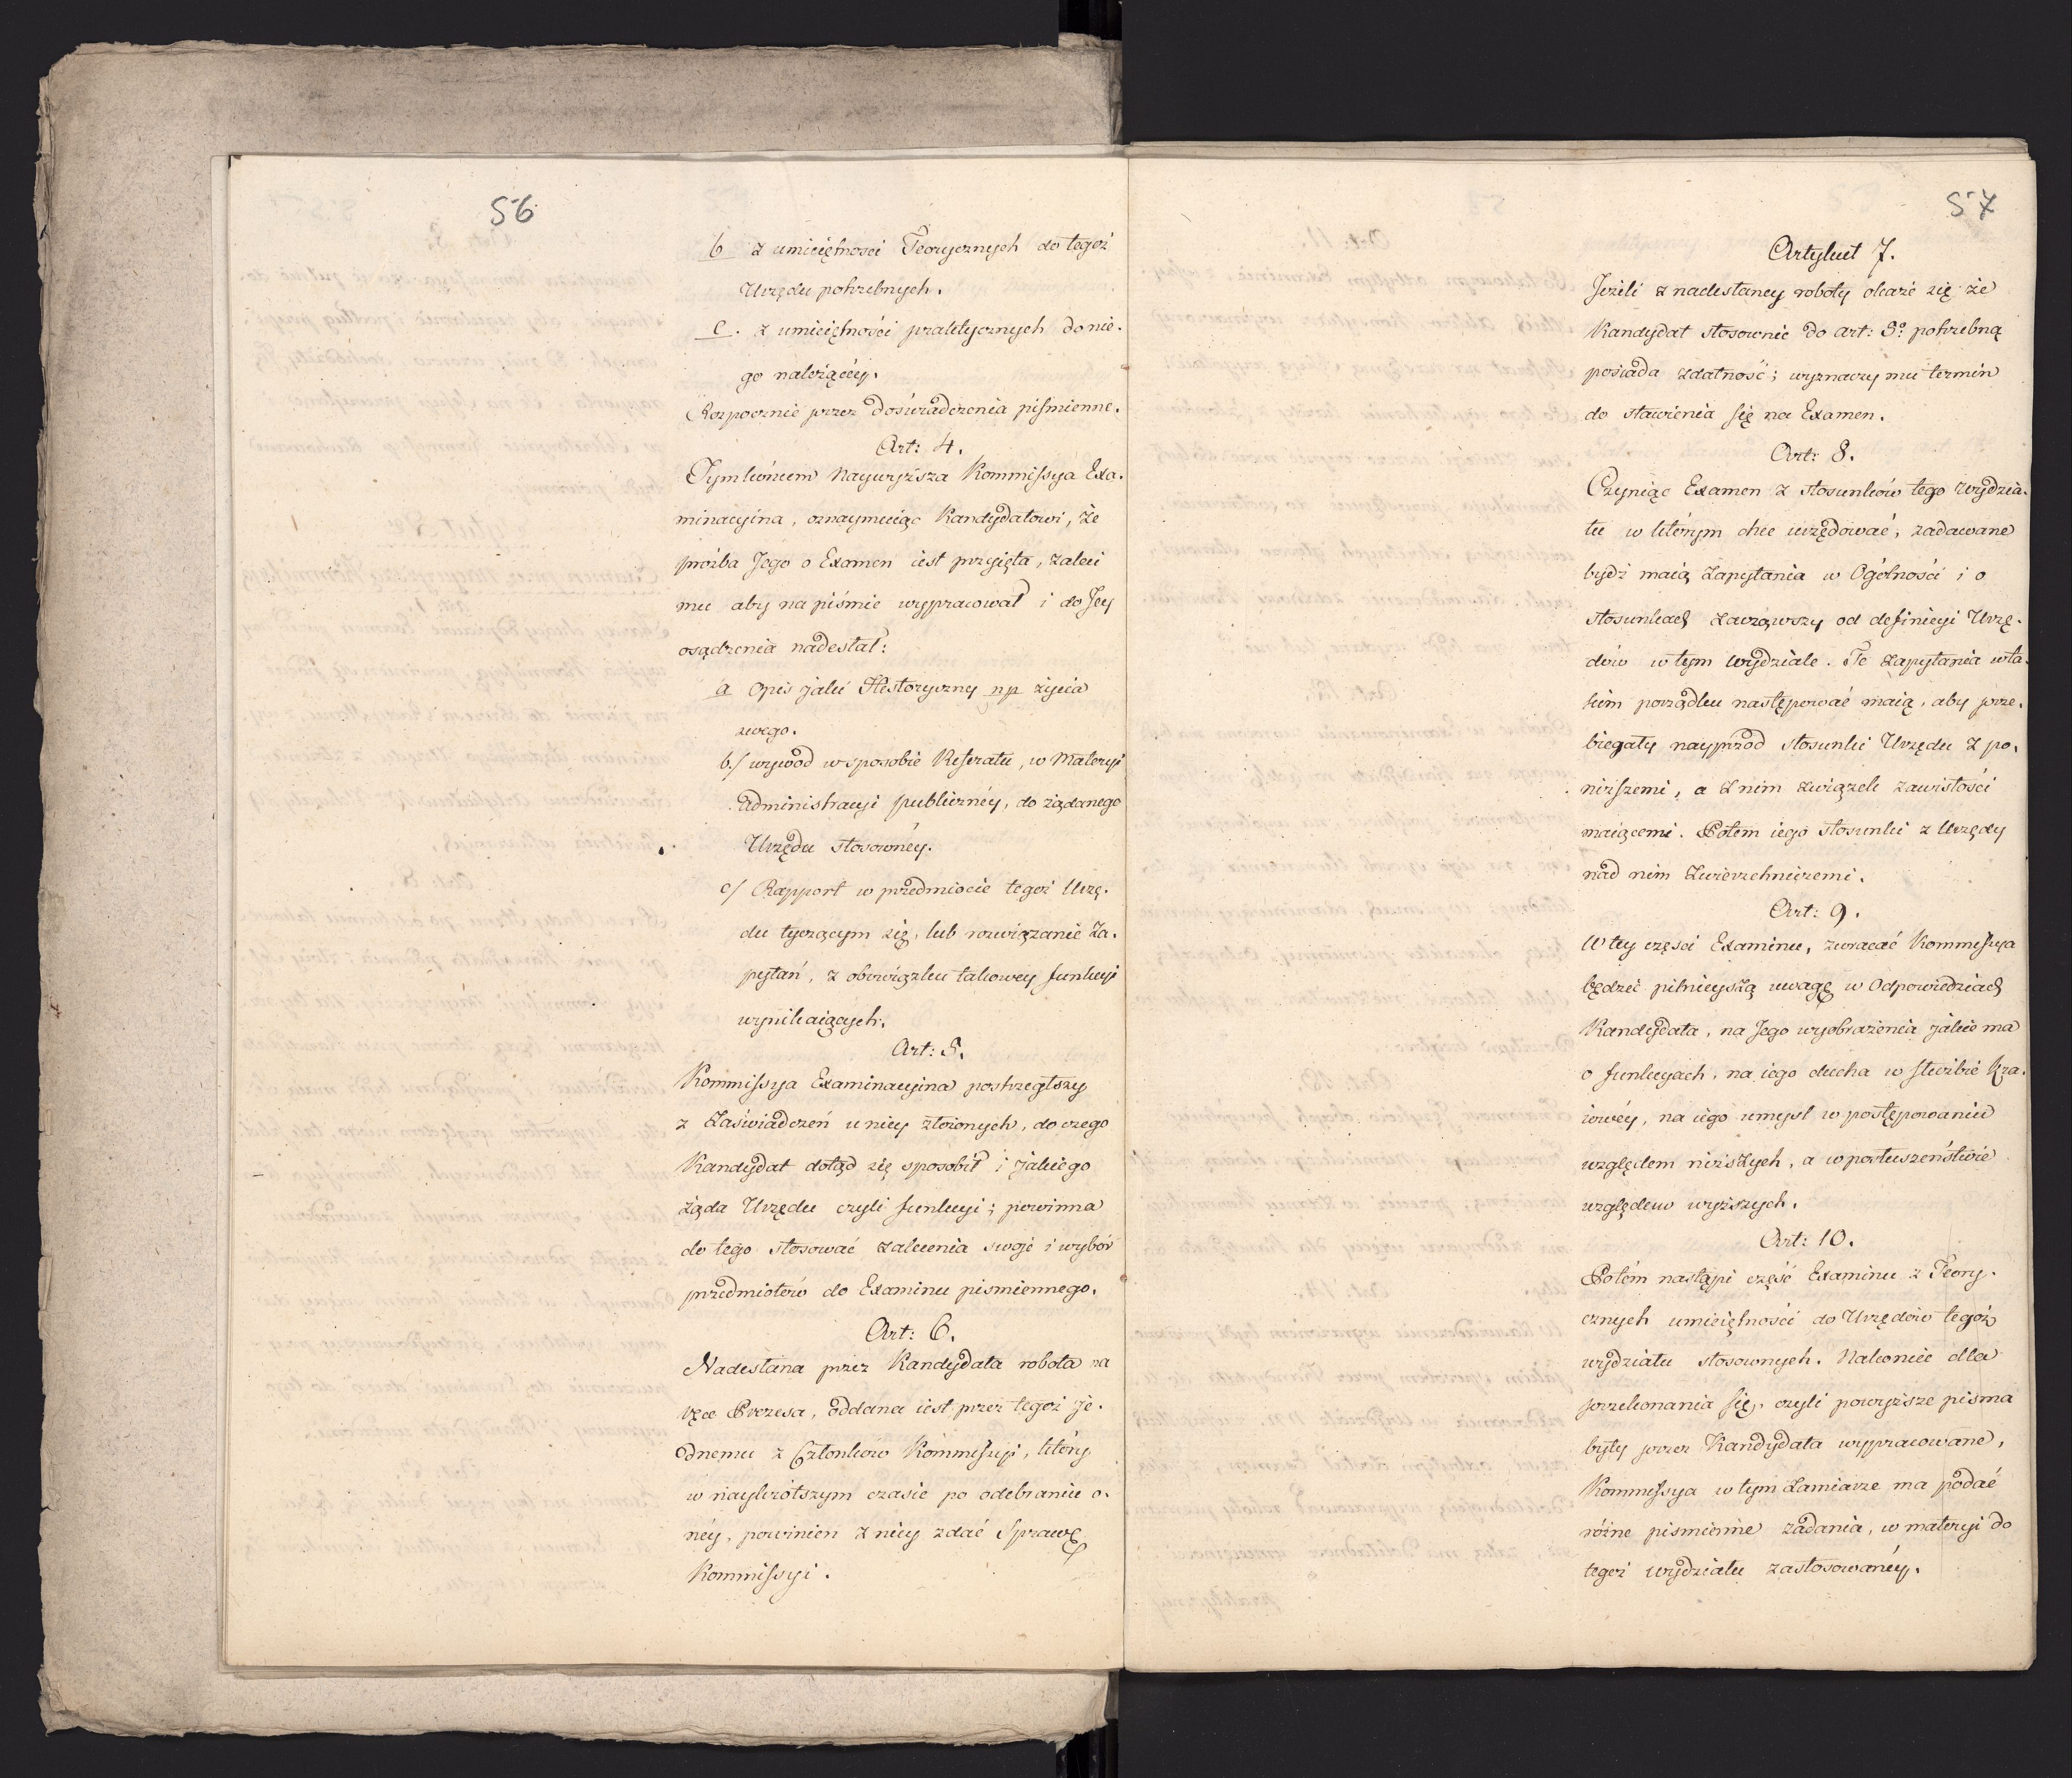 56
b z umieiętnosci Teorycznych do tegoż
Urzędu potrzebnych.
c. z umieiętności praktycznych do nie-
go należącéy.
Rozpocznie przez doświadczenia piśmienne.
Art: 4.
Tymkońcem Naywyższa Kommissya Exa-
minacyina, oznaymuiąc Kandydatowi, że
prożba Jego o Examen iest przyięta, zaleci
mu aby na piśmie wypracował i do Jey
osądzenia nadesłał:
a Opis jaki Historyczny np życia
swego.
b./ wywód w sposobie Referatu, w Materyi
Administracyi publicznéy, do żądanego
Urzędu stosownéy.
c/ Rapport w przedmiocie tegoż Urzę-
du tyczącym się, lub rozwiązanie Za-
pytań, z obowiązku takowey funkcyi
wynikaiących.
Art: 5.
Kommissya Examinacyina postrzegłszy
z Zaświadczeń u niey złożonych, do czego
Kandydat dotąd się sposobił i jakiego
żąda Urzędu czyli funkcyi; powinna
do tego stosować zalecenia swoje i wybór
przedmiotów do Examinu pismiennego.
Art: 6.
Nadesłana przez Kandydata robota na
ręce Prezesa, oddana iest przez tegoż Je-
dnemu z Członków Kommissyi, który
w naykrótszym czasie po odebraniu o-
néy, powinien z niey zdać Sprawę
Kommissyi.
57
Artykuł 7.
Jeżeli z nadesłaney roboty okaże się że
Kandydat stosownie do art: 5º potrzebną
posiada zdatność; wyznaczy mu termin
do stawienia się na Examen.
Art: 8.
Czyniąc Examen z stosunków tego Wydzia-
łu w którym chce urzędować, zadawane
bydź maią Zapytania w Ogólności i o
stosunkach zacząwszy od definicyi Urzę-
dów w tym wydziale. Te zapytania w ta-
kim porządku następować maią, aby prze-
biegały nayprzód stosunki Urzędu z po-
niższemi, a z nim związek zawisłości
maiącemi. Potem iego stosunki z Urzędy
nad nim Zwierzchniczemi.
Art: 9.
W tey części Examinu, zwracać Kommissya
będzie pilnieyszą uwagę w Odpowiedziach
Kandydata, na Jego wyobrażenia jakie ma
o funkcyach, na iego ducha w służbie Kra-
iowéy, na iego umysł w postępowaniu
względem niższych, a w posłuszeństwie
względem wyższych.
Art: 10.
Potém nastąpi część Examinu z Teory-
cznych umieiętności do Urzędów tegóż
wydziału stosownych. Nakoniec dla
przekonania się, czyli powyższe pisma
były przez Kandydata wypracowane,
Kommissya w tym Zamiarze ma podać
różne pismienne zadania, w materyi do
tegoż wydziału zastosowanéy.